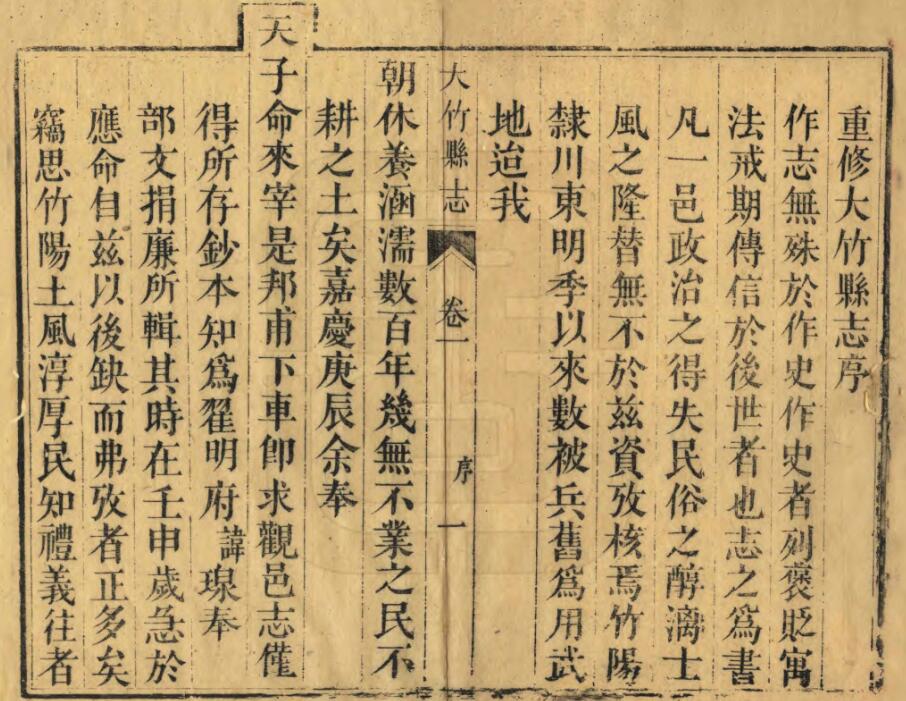 重修大竹縣志序
作志無殊於作史作史者列褒貶寓
法戒期傳信於後世者也志之爲書
凡一邑政治之得失民俗之醇漓士
風之隆替無不於兹資攷核焉竹陽
隸川東明季以來數被兵舊爲用武
地迨我
大竹縣志 卷一 序 一
朝休養涵濡數百年幾無不業之民不
耕之土矣嘉慶庚辰余奉
天子命來宰是邦甫下車卽求觀邑志僅
得所存鈔本知爲翟明府諱瑔奉
部文捐廉所輯其時在壬申歲急於
應命自兹以後缺而弗攷者正多矣
竊思竹陽土風淳厚民知禮義往者